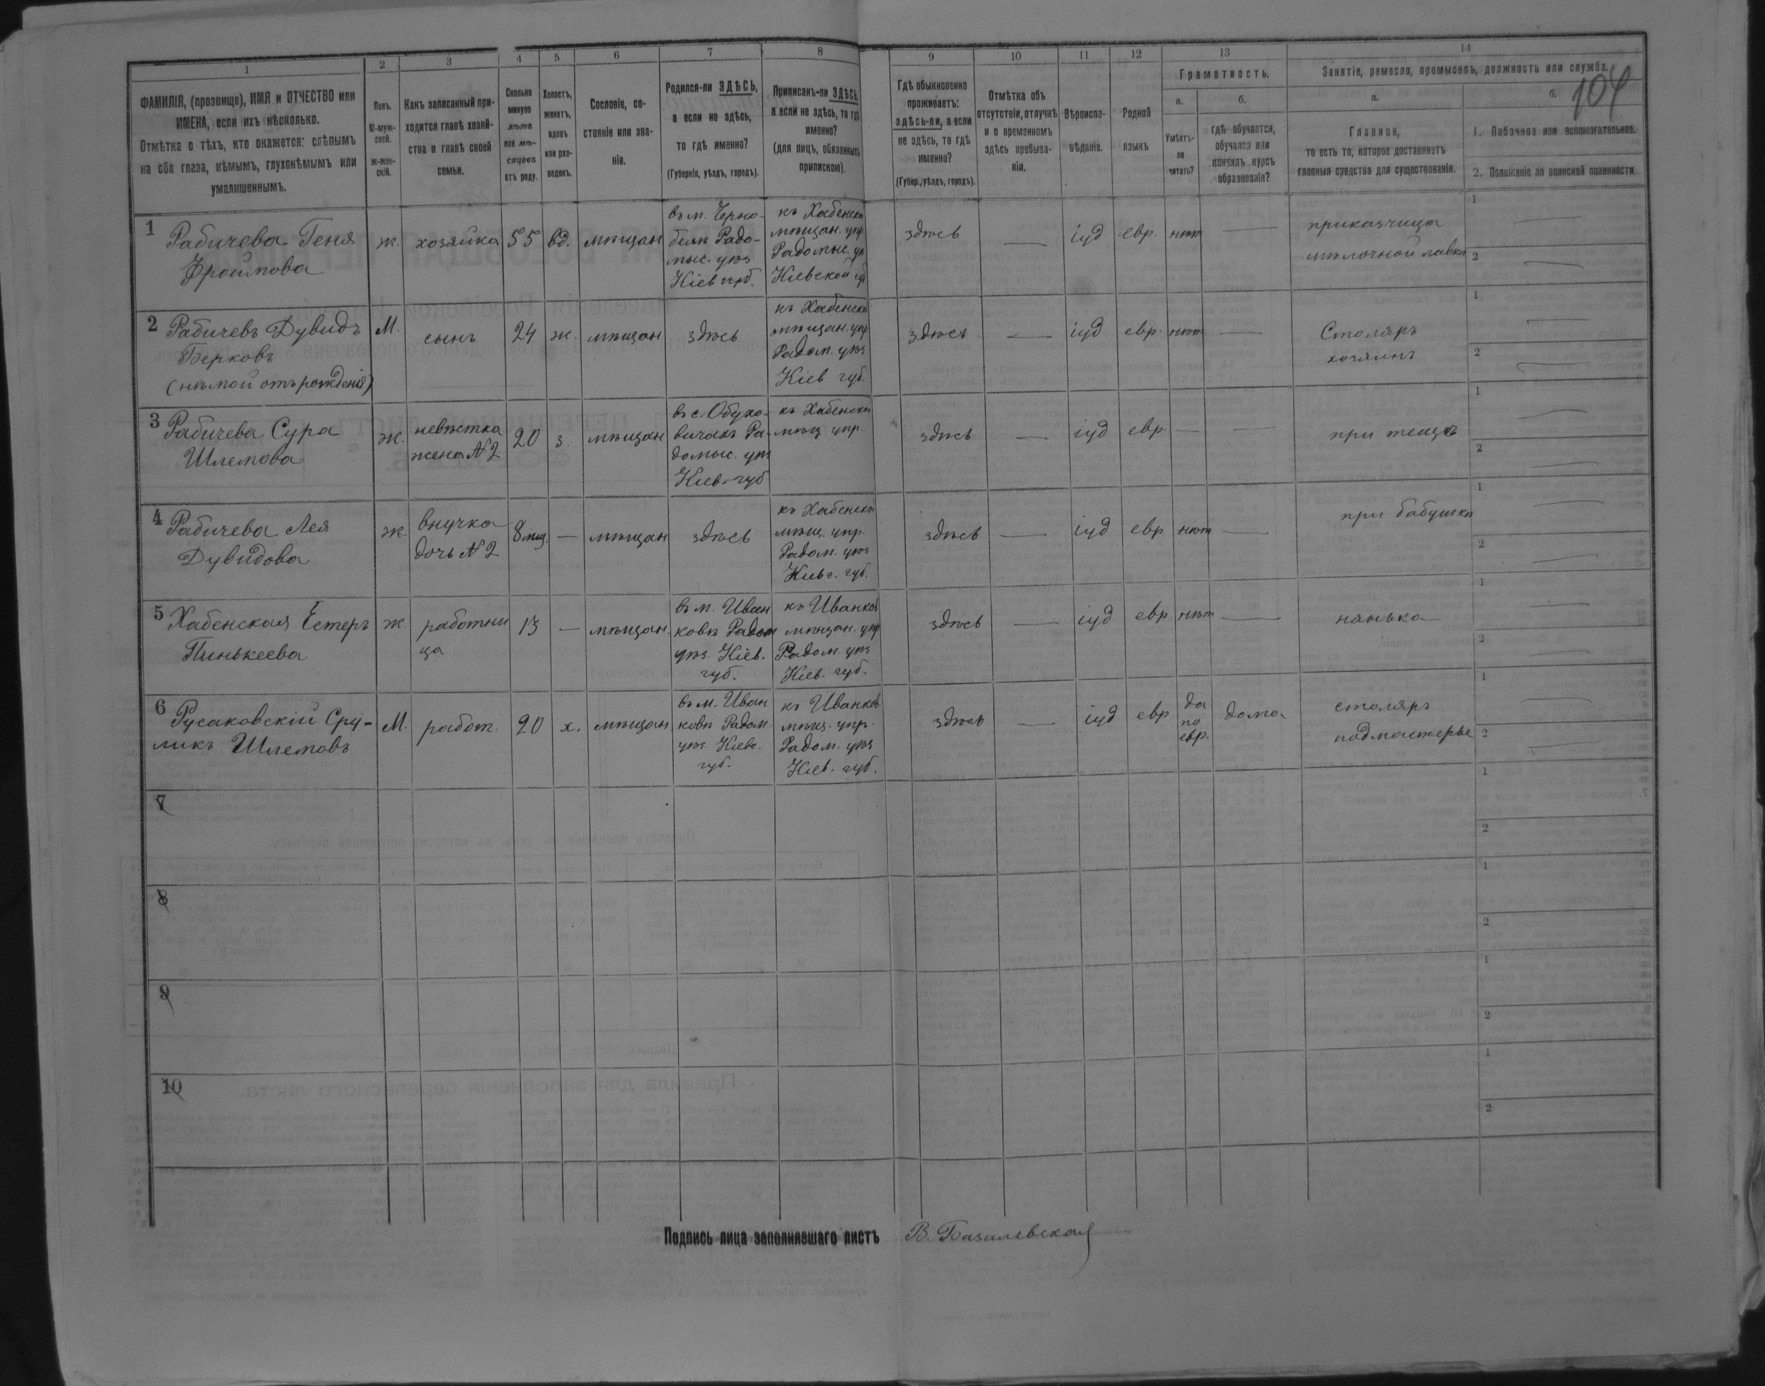 104
1 2 3 4 5 6 7 8 9 10 11 12 13 14
ФАМИЛІЯ, (прозвище), ИМЯ и ОТЧЕСТВО или
ИМЕНА, если ихъ нѣсколько.
Отмѣтка о тѣхъ, кто окажется: слѣпымъ
на оба глаза, нѣмымъ, глухонѣмымъ или
умалишеннымъ.
Полъ.
М-муж-
ской.
ж-жен-
скій.
Какъ записанный при-
ходится главѣ хозяй-
ства и главѣ своей
семьи.
Сколько
минуло
лѣтъ
или мѣ-
сяцевъ
отъ роду.
Холостъ,
женатъ,
вдовъ
или раз-
веденъ.
Сословіе, со-
стояніе или зва-
ніе.
Родился-ли ЗДѢСЬ,
а если не здѣсь,
то гдѣ именно?
(Губернія, уѣздъ, городъ).
Приписанъ-ли ЗДѢСЬ,
а если не здѣсь, то гдѣ
именно?
(для лицъ, обязанныхъ
припискою).
Гдѣ обыкновенно
проживаетъ:
здѣсь-ли, а если
не здѣсь, то гдѣ
именно?
(Губер., уѣздъ, городъ).
Отмѣтка объ
отсутствіи, отлучкѣ
и о временномъ
здѣсь пребыва-
ніи.
Вѣроиспо-
вѣданіе.
Родной
языкъ
Грамотность.
а.
Умѣетъ-
ли
читать?
б.
гдѣ обучается,
обучался или
кончилъ курсъ
образованія?
Занятіе, ремесло, промыселъ, должность или служба.
а.
Главное,
то есть то, которое доставляетъ
главныя средства для существованія.
б.
1. Побочное или вспомогательное.
2. Положеніе по воинской повинности.
1 Рабичева Геня
Фроимова
ж.
хозяйка
55
вд.
мѣщан
въ м. Черно-
белѣ Радо-
мыс. уѣз
Кіев губ.
къ Хабенско
мѣщан. упр
Радомыс. уѣ
Кіевской губ
здѣсь
—
іуд
евр.
нѣт
—
приказчица
мѣлочной лавки
1 —
2 —
2 Рабичевъ Дувидъ
Берковъ
(нѣмой отъ рожденія)
М.
сынъ
24
ж.
мѣщан
здѣсь
къ Хабенско
мѣщан. упр
Радом. уѣз
Кіев губ.
здѣсь
—
іуд
евр.
нѣт
—
Столяръ
хозяинъ
1 —
2 —
3 Рабичева Сура
Шлемова
ж.
невѣстка
жена №2
20
з.
мѣщан
въ с. Обухо-
вичахъ Ра-
домыс. уѣз
Кіев. губ
къ Хабенско
мѣщ упр.
здѣсь
—
іуд
евр
—
—
1 —
2 —
4 Рабичева Лея
Дувидова
ж
внучка
дочь №2
8 мѣц.
—
мѣщан
здѣсь
къ Хабенско
мѣщ. упр.
Радом. уѣз
Кіев. губ.
здѣсь
—
іуд
евр
нѣт
—
при бабушки
1 —
2 —
5 Хабенская Естеръ
Пинькеева
ж
работни
ца
13
—
мѣщан.
въ м. Иван
ковѣ Радом
уѣз. Кіев.
губ.
къ Иванков
мѣщан. упр
Радом. уѣз
Кіев. губ.
здѣсь
—
іуд
евр
нѣт
—
нянька
1 —
2 —
6 Русаковскій Сру-
ликъ Шлемовъ
М.
работ.
20
х.
мѣщан
въ м. Иван
ковѣ Радом
уѣз. Кіевс.
губ.
къ Иванков
мѣщ. упр.
Радом. уѣз
Кіев. губ.
здѣсь
—
іуд
евр
да
по
евр.
дома
столяръ
подмастерье
1 —
2 —
7
1
2
8
1
2
9
1
2
10
1
2
Подпись лица заполнявшаго листъ В. Базилевская